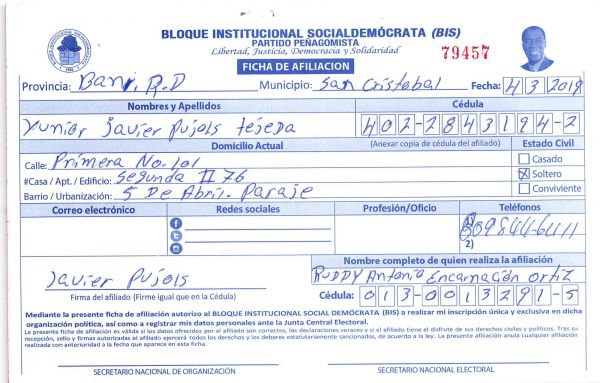 BLOQUE INSTITUCIONAL SOCIALDEMÓCRATA (BIS)
PARTIDO PEÑAGOMISTA
Libertad, Justicia, Democracia y Solidaridad
79457
FICHA DE AFILIACION
Provincia: Bani, R.D Municipio: San Cristobal Fecha: 4 3 2019
Nombres y Apellidos Cédula
Yunior Javier Pujols tejeda 402-2843194-2
Domicilio Actual (Anexar copia de cédula del afiliado) Estado Civil
Calle: Primera No. 101 Casado
#Casa / Apt. / Edificio: Segunda II 76 X Soltero
Barrio / Urbanización: 5 De Abril. Paraje Conviviente
Correo electrónico Redes sociales Profesión/Oficio Teléfonos
1)
2)
Nombre completo de quien realiza la afiliación
Javier Pujols RUDDY Antonio Encarnación Ortiz
Firma del afiliado (Firme igual que en la Cédula) Cédula: 013-0013291-5
Mediante la presente ficha de afiliación autorizo al BLOQUE INSTITUCIONAL SOCIAL DEMÓCRATA (BIS) a realizar mi inscripción única y exclusiva en dicha
organización política, así como a registrar mis datos personales ante la Junta Central Electoral.
La presente ficha de afiliación es válida si las datos ofrecidos por el afiliado son correctos, las declaraciones veraces y si el afiliado tiene el disfrute de sus derechos civiles y políticos. Tras su
recepción, sello y firmas autorizadas el afiliado ejercerá todos los derechos y los deberes estatutariamente sancionados, de acuerdo a la ley. La presente afiliación anula cualquier afiliación
realizada con anterioridad a la fecha que aparece en esta ficha.
SECRETARIO NACIONAL DE ORGANIZACIÓN SECRETARIO NACIONAL ELECTORAL